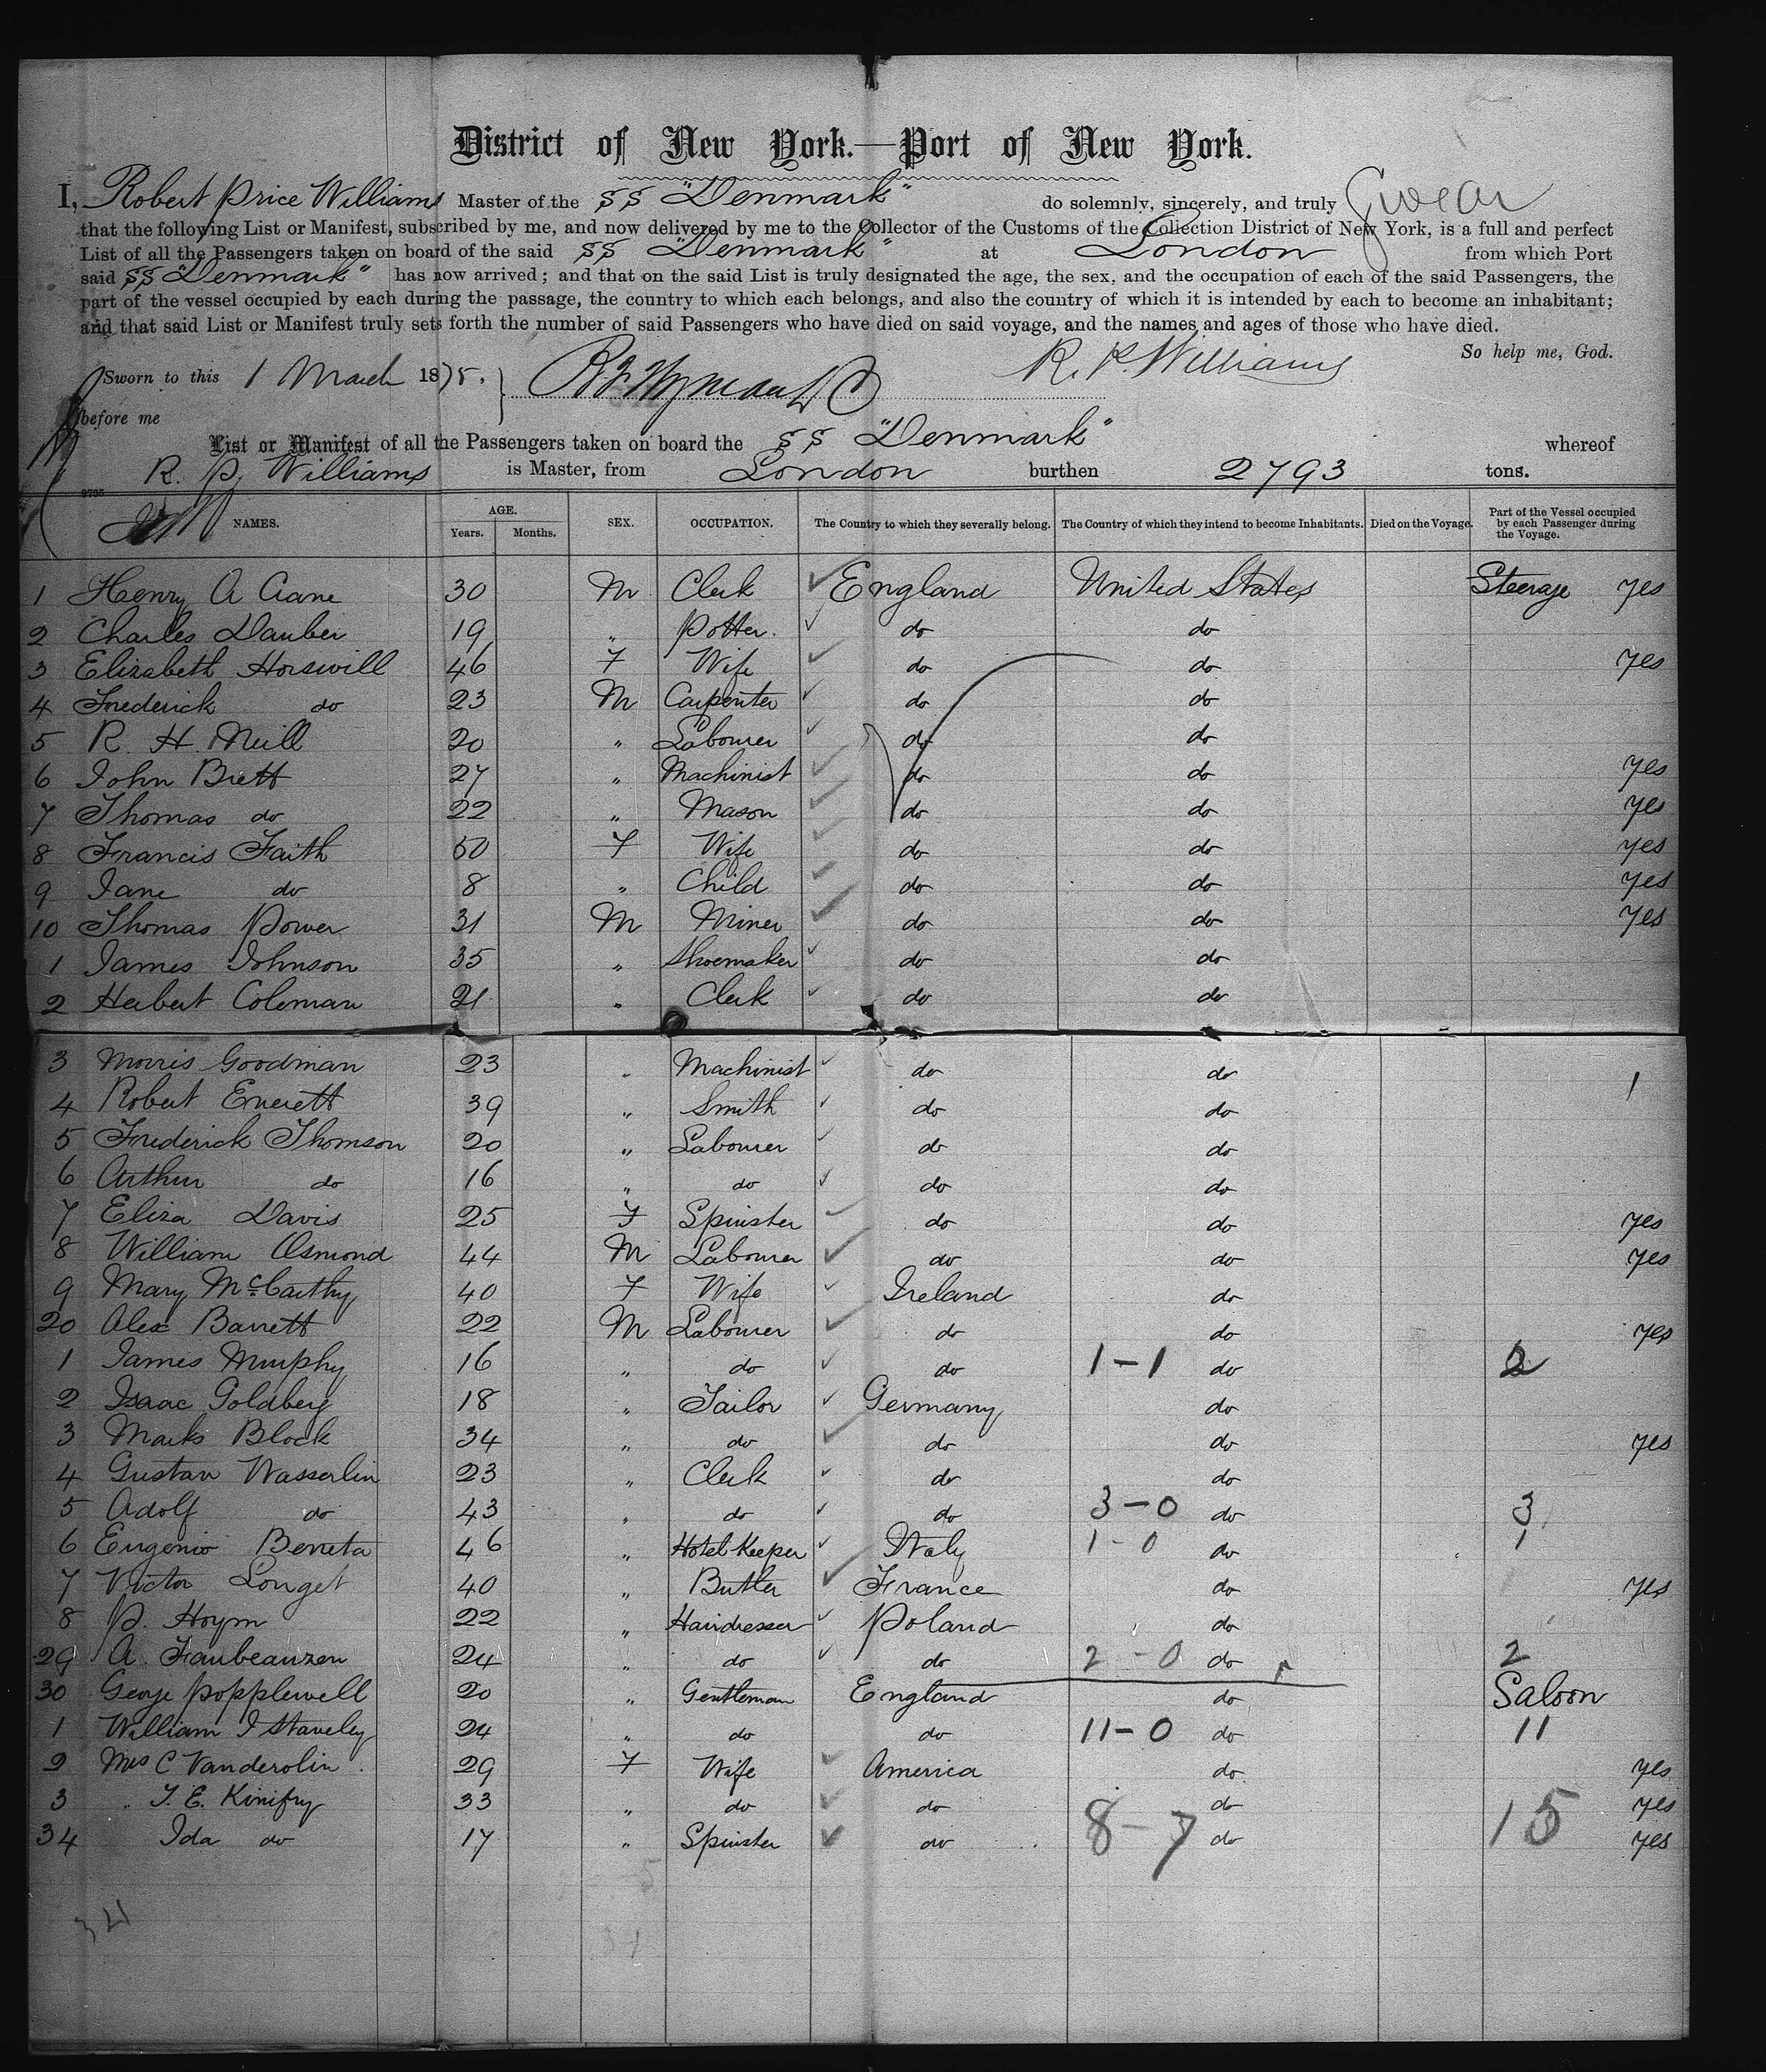 District of New York.—Port of New York.
I, Robert Price Williams Master of the SS "Denmark" do solemnly, sincerely, and truly Swear
that the following List or Manifest, subscribed by me, and now delivered by me to the Collector of the Customs of the Collection District of New York, is a full and perfect
List of all the Passengers taken on board of the said SS "Denmark" at London from which Port
said SS "Denmark" has now arrived; and that on the said List is truly designated the age, the sex, and the occupation of each of the said Passengers, the
part of the vessel occupied by each during the passage, the country to which each belongs, and also the country of which it is intended by each to become an inhabitant;
and that said List or Manifest truly sets forth the number of said Passengers who have died on said voyage, and the names and ages of those who have died.
So help me, God.
Sworn to this 1 March 1875. R. P. Williams
before me
List or Manifest of all the Passengers taken on board the SS "Denmark" whereof
R. P. Williams is Master, from London burthen 2793 tons.
NAMES. AGE. Years. Months. SEX. OCCUPATION. The Country to which they severally belong. The Country of which they intend to become Inhabitants. Died on the Voyage. Part of the Vessel occupied by each Passenger during the Voyage.
1 Henry A Crane 30 M Clerk England United States Steerage yes
2 Charles Dauber 19 " Potter do do
3 Elizabeth Horswill 46 F Wife do do yes
4 Frederick do 23 M Carpenter do do
5 R. H. Neill 20 " Labourer do do
6 John Brett 27 " Machinist do do yes
7 Thomas do 22 " Mason do do yes
8 Francis Faith 50 F Wife do do yes
9 Jane do 8 " Child do do yes
10 Thomas Power 31 M Miner do do yes
1 James Johnson 35 " Shoemaker do do
2 Herbert Coleman 21 " Clerk do do
3 Morris Goodman 23 " Machinist do do 1
4 Robert Everett 39 " Smith do do
5 Frederick Thomson 20 " Labourer do do
6 Arthur do 16 " do do do
7 Eliza Davis 25 F Spinster do do yes
8 William Osmond 44 M Labourer do do yes
9 Mary McCarthy 40 F Wife Ireland do
20 Alex Barrett 22 M Labourer do do yes
1 James Murphy 16 " do do 1-1 do 2
2 Isaac Goldberg 18 " Tailor Germany do
3 Marks Block 34 " do do do yes
4 Gustav Wasserlin 23 " Clerk do do
5 Adolf do 43 " do do 3-0 do 3
6 Eugenio Berreta 46 " Hotel Keeper Italy 1-0 do 1
7 Victor Longet 40 " Butler France do yes
8 P. Hoym 22 " Hairdresser Poland do
29 A. 24 " do do 2-0 do 2
30 George Popplewell 20 " Gentleman England do Saloon
1 William J Staveley 24 " do do 11-0 do 11
2 Mrs C Vanderolin 29 F Wife America do yes
3 " T. E. 33 " do do do yes
34 Ida do 17 " Spinster do 8-7 do 15 yes
34